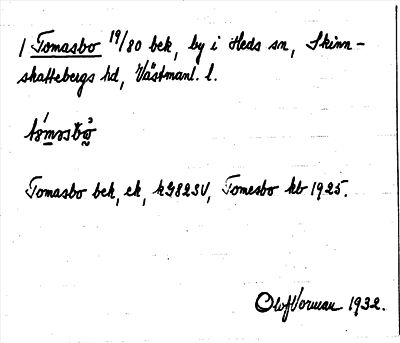 / Tomasbo 19/80 bek, by i Heds sn, Skinn-
skattebergs hd, Västmanl. l.
Tomasbo bek, ek, kG82SV, Tomesbo kb 1925.
Olof Vorman 1932.